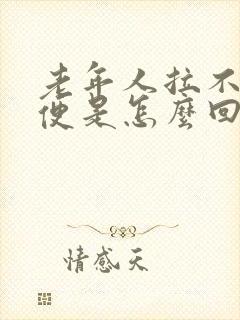 老年人拉不
便是怎麼回
情感天